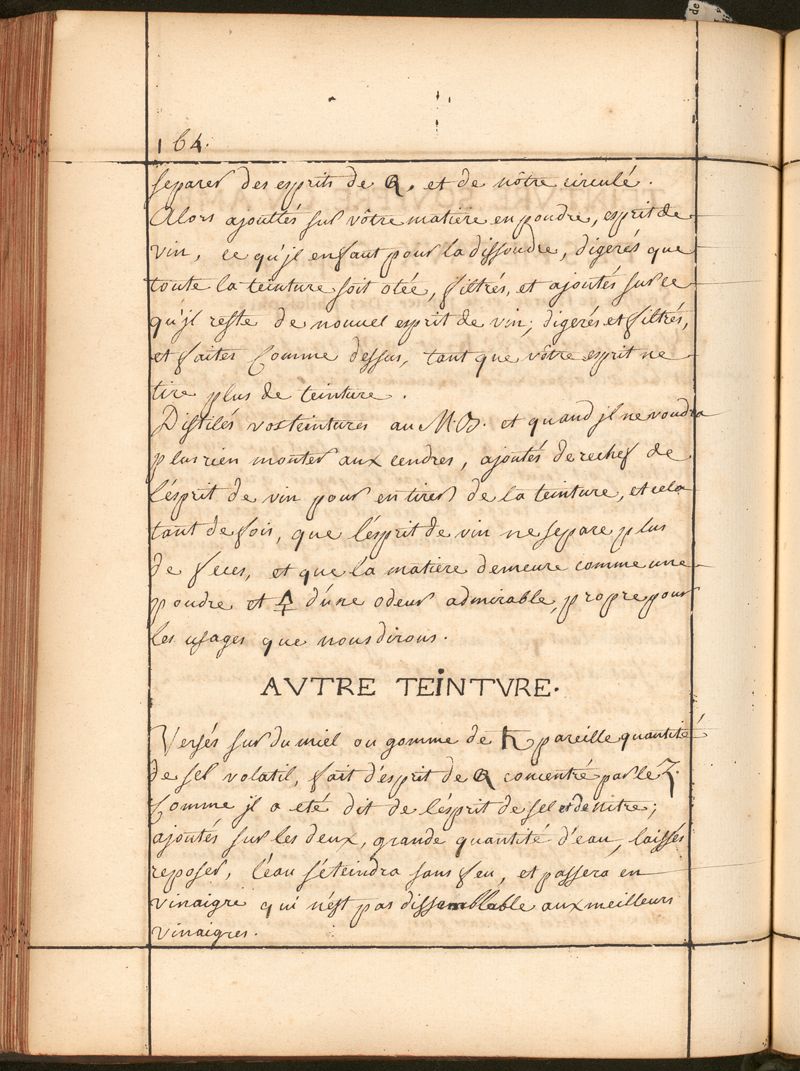 164.
separer des esprits de . et de nôtre circulé.
Alors ajouttés sur vôtre matiere en poudre, esprit de
vin, ce qu'jl en faut pour la dissoudre, digerés que
toute la teinture soit otée, filtrés, et ajoutés sur ce
qu'jl reste de nouuel esprit de vin; digerés et filtrés,
et faites Comme dessus, tant que vôtre esprit ne
tire plus de teinture.
Distilés vos teintures au M.B. et quand jl ne voudra
plus rien monter aux cendres, ajoutés derechef de
l'ésprit de vin pour en tirer de la teinture, et cela
tant de fois, que l'ésprit de vin ne separe plus
de feces, et que la matiere demeure comme une
poudre et 🜍 d'úne odeur admirable, propre pour
les usages que nous dirons.
AVTRE TEINTVRE.
Versés sur du miel ou gomme de ♄ pareille quantité
de sel volatil, fait d'ésprit de concentré par le
Comme jl a eté dit de l'ésprit de sel et de nitre;
ajoutés sur les deux, grande quantité d'eau, laissés
reposer, l'éau s'éteindra sans feu, et passera en
vinaigre qui n'ést pas dissemblable aux meilleurs
vinaigres.